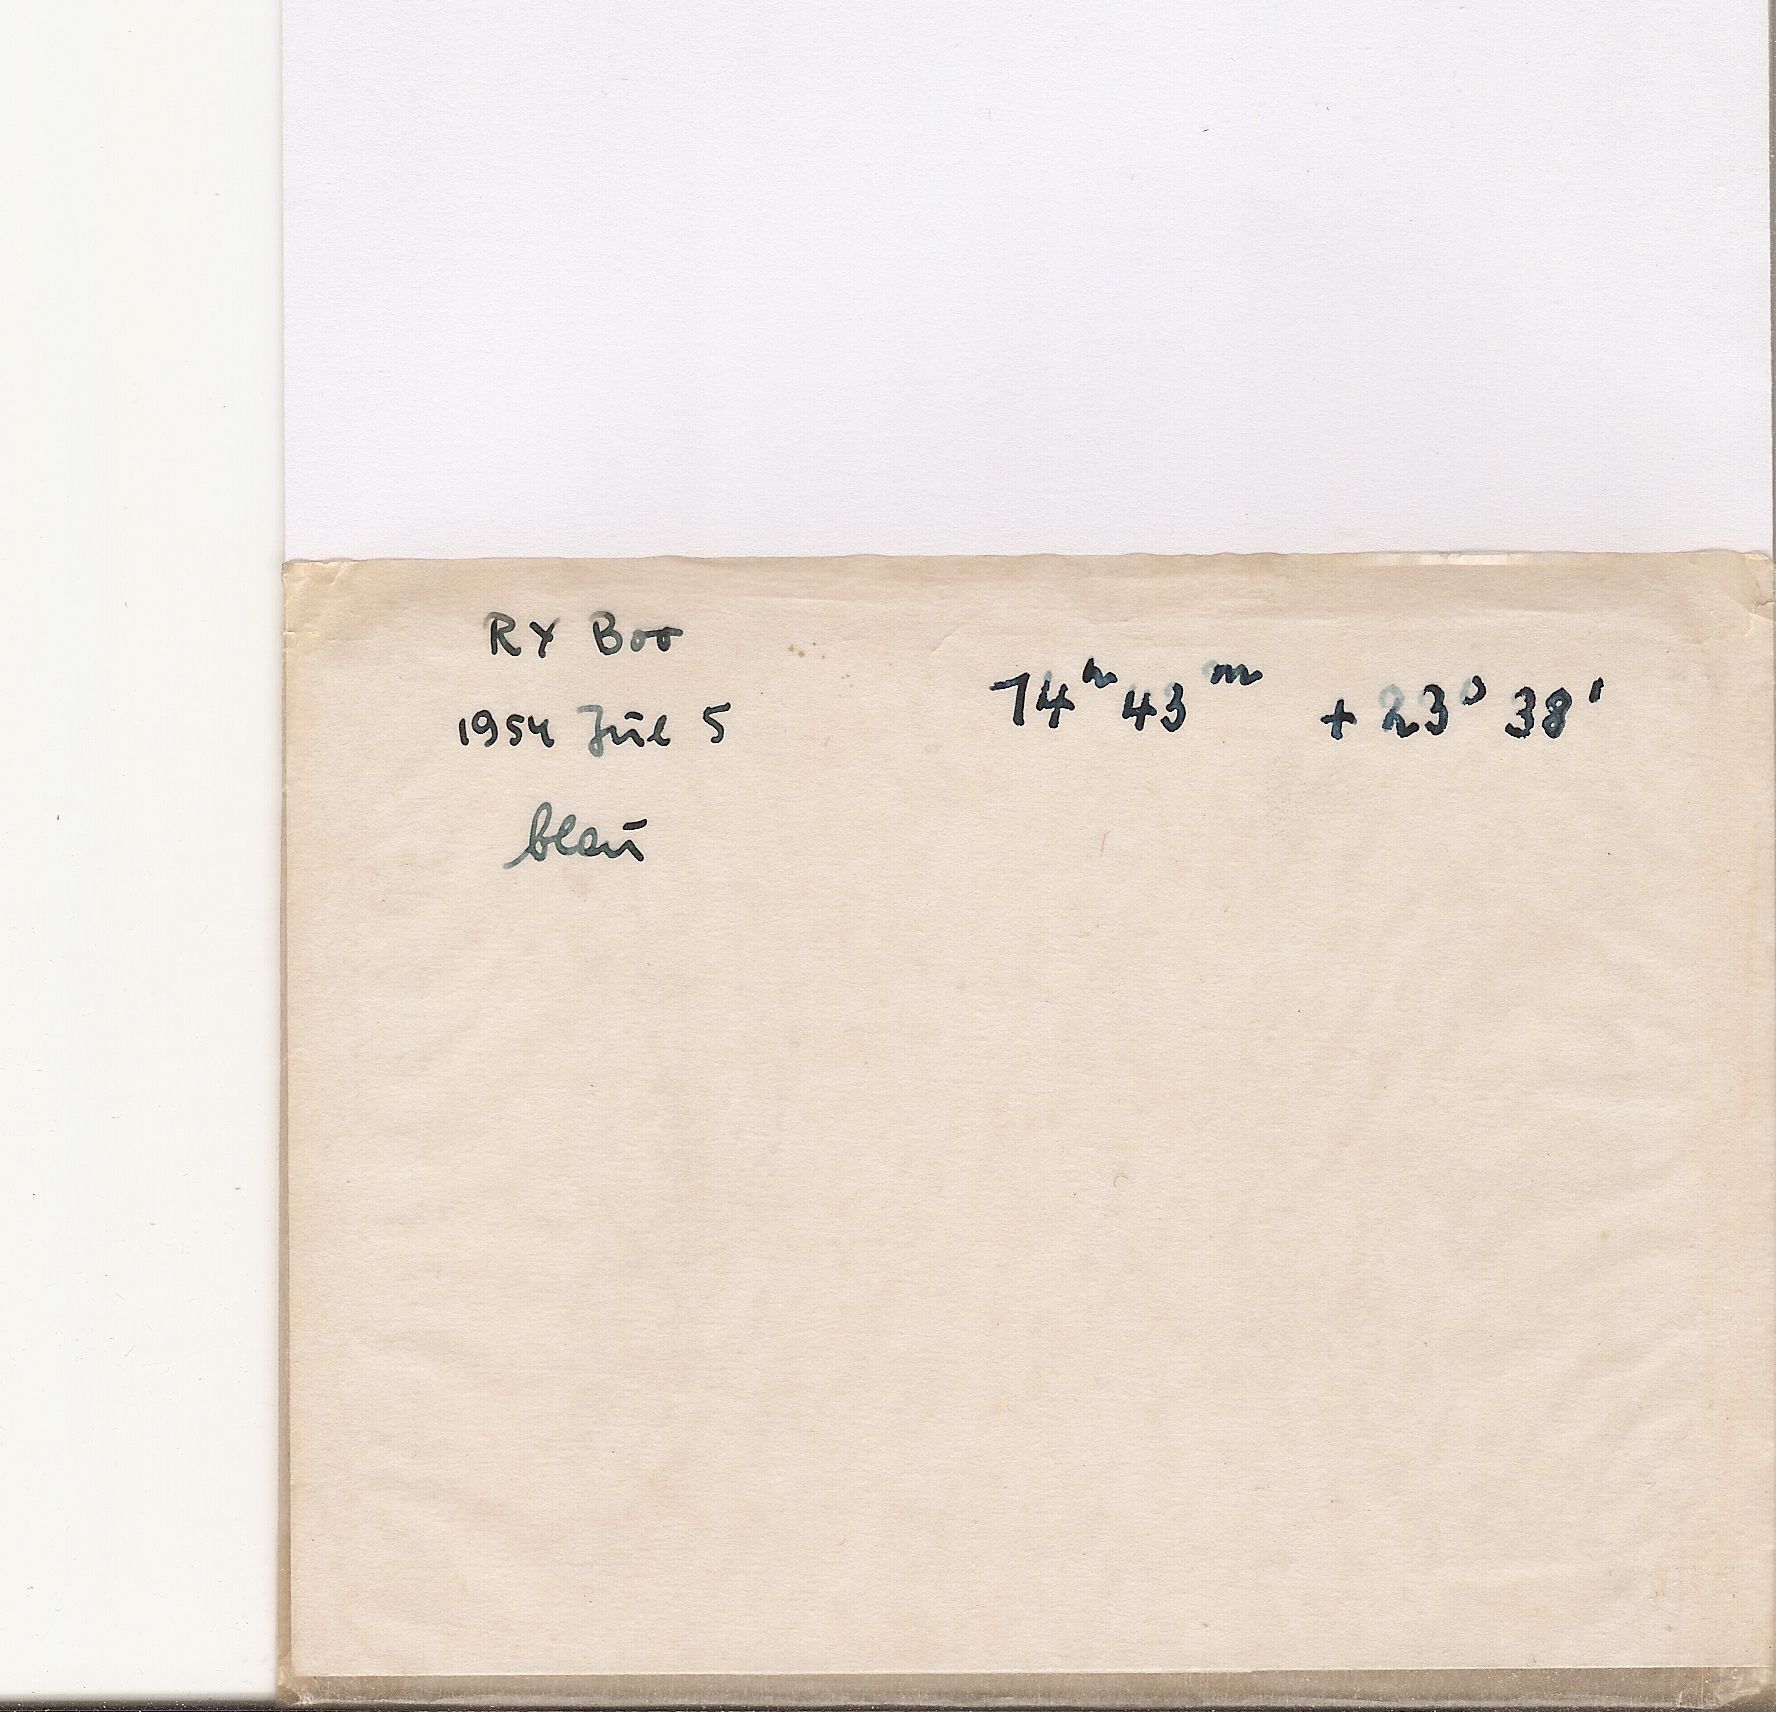 RX Boo
1954 Jul 5
blau
14h 43m + 23° 38'